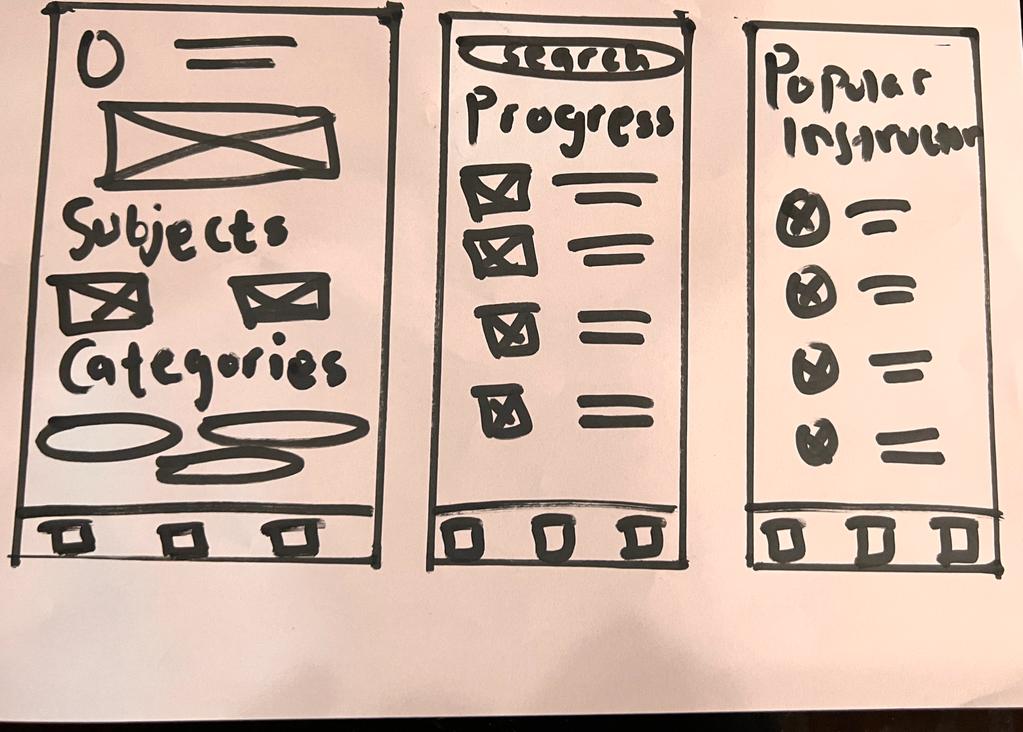 Subjects
Categories
search
Progress
Popular
Instructor